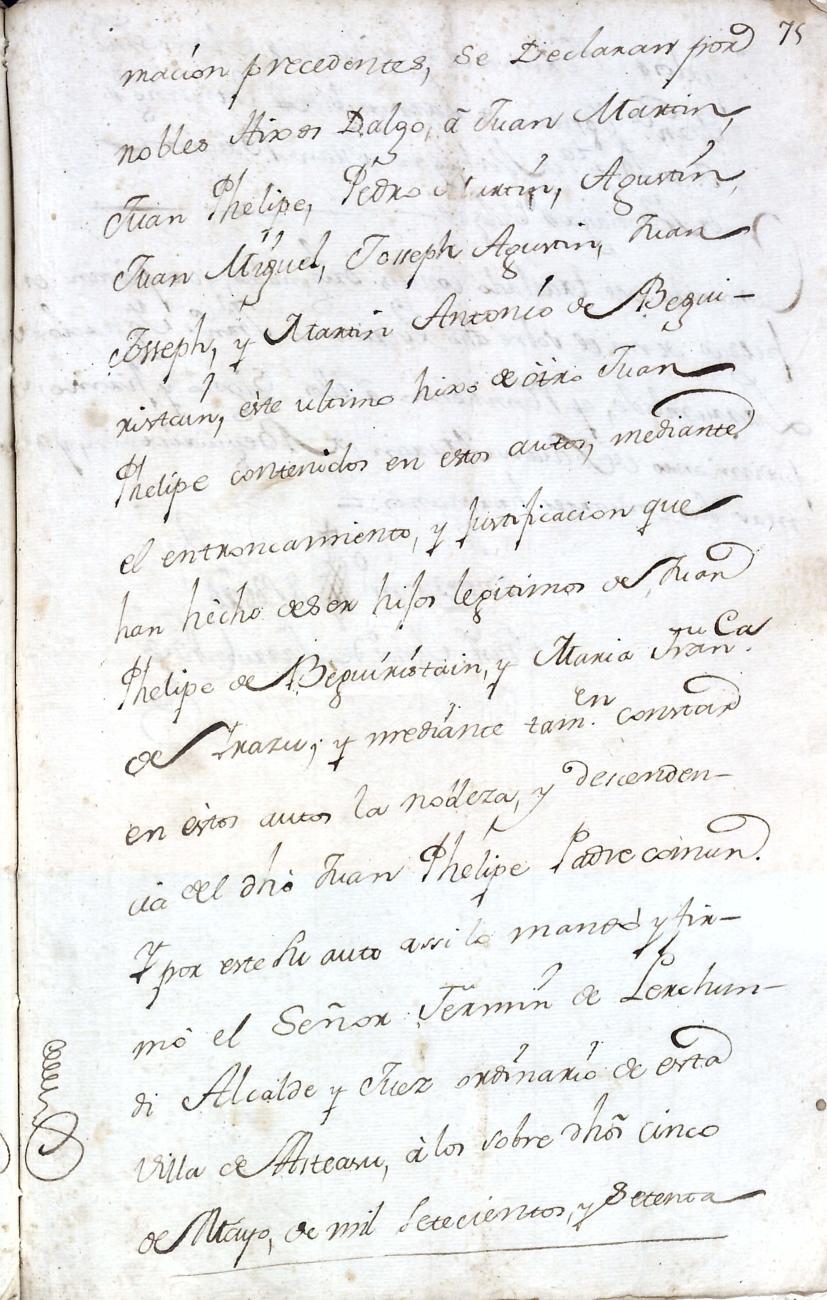 75
macion precedentes, se Declaran por
nobles Hixos Dalgo, â Juan Martin,
Juan Phelipe, Pedro Martin, Agustin,
Juan Miguel, Josseph Agustin, Juan
Josseph, y Martin Antonio de Begui-
ristain, este ultimo hixo de ôtro Juan
Phelipe contenidos en estos autos, mediante
el entroncamiento, y justificacion que
han hècho de ser hijos legitimos de Juan
Phelipe de Beguiristain, y Maria Fran.ca
de Irazu; y mediante tam.en constar
en èstos autos la nobleza, y descenden-
cia del dho Juan Phelipe Padre comun.
Y por este su auto assi lo mandò y fir-
mò el Señor Fermin de Lerchun-
di Alcalde y Juez ordinario de esta
Villa de Asteasu, à los sobre dhos cinco
de Mayo, de mil setecientos, y setenta